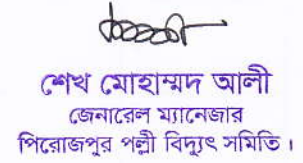 শেখ মোহাম্মদ আলী
জেনারেল ম্যানেজার
পিরোজপুর পল্লী বিদ্যুৎ সমিতি।